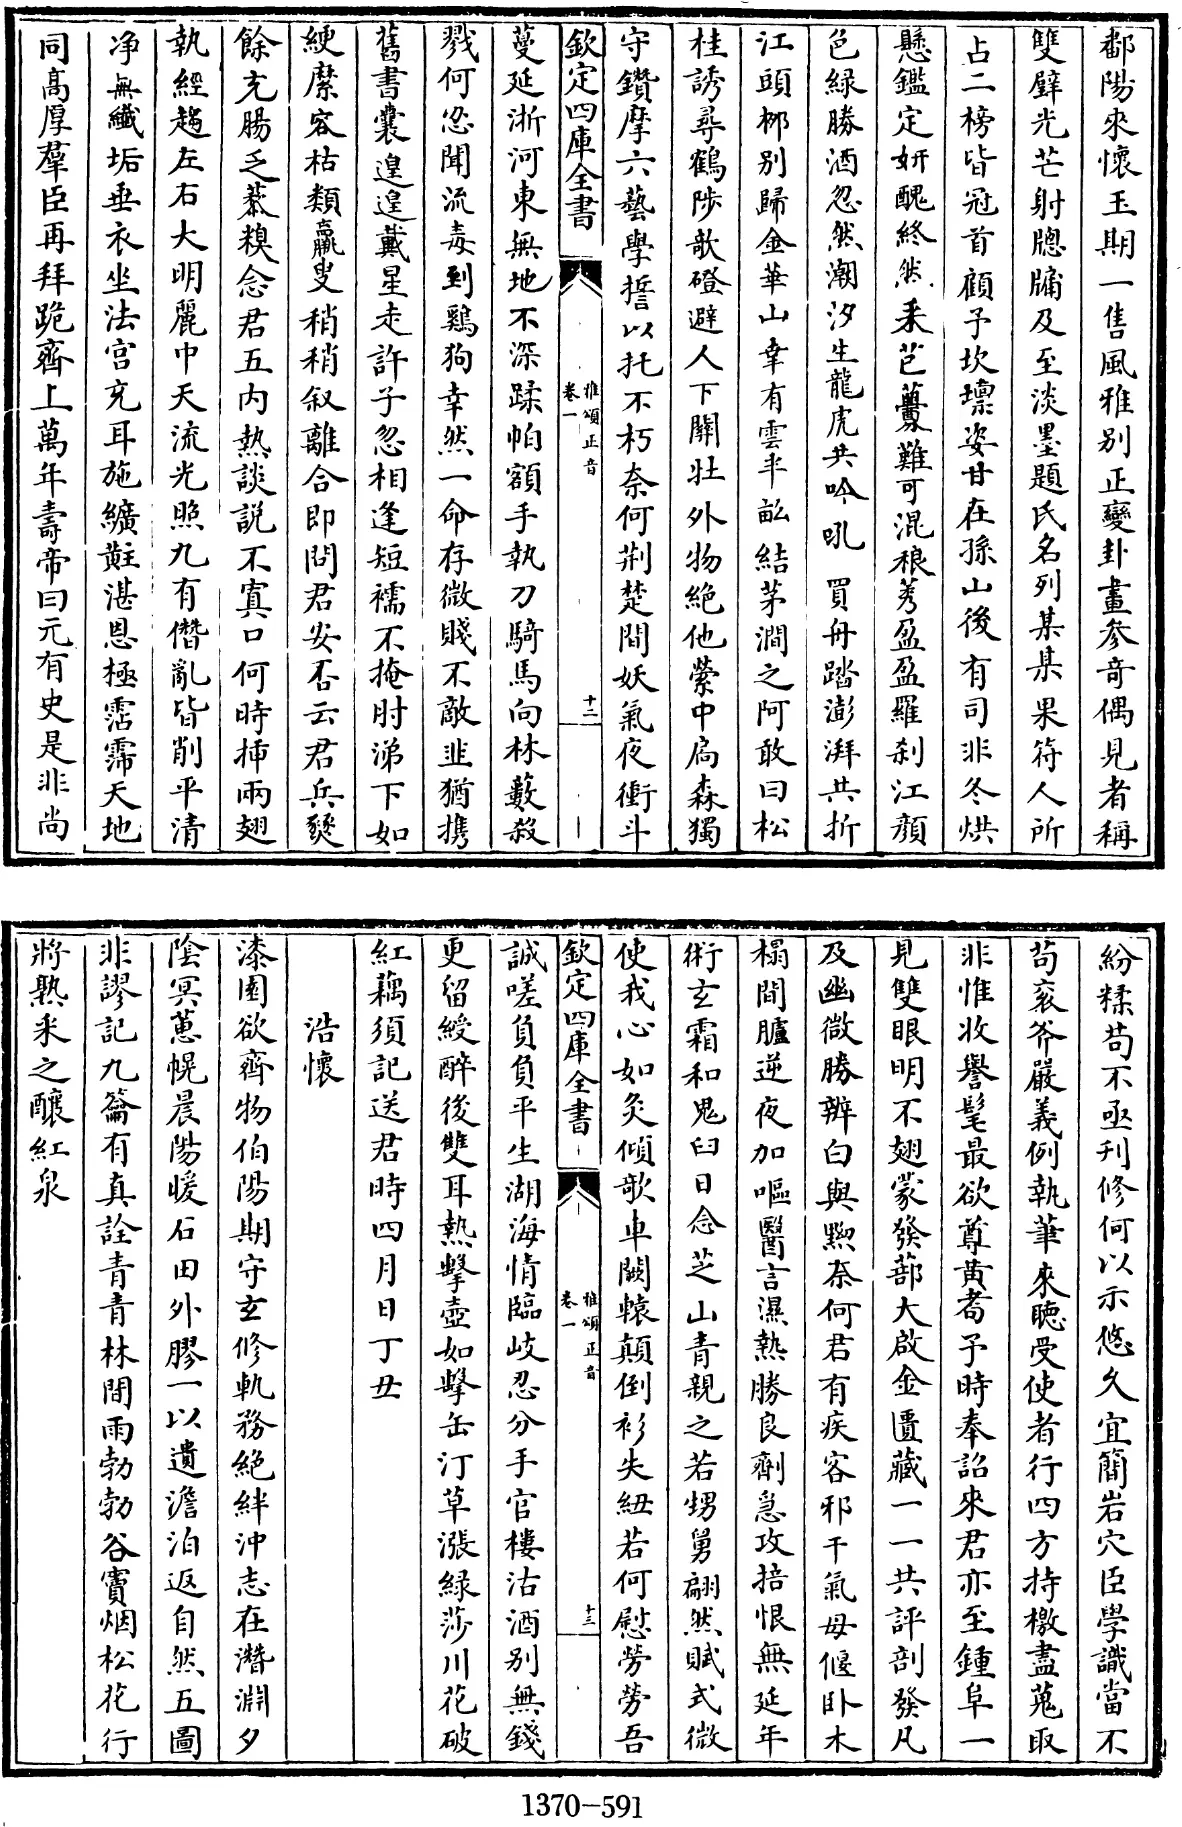 鄱陽來懷玉期一售風雅別正變卦畫參奇偶見者稱
雙璧光芒射牎牖及至淡墨題氏名列某某果符人所
占二榜皆冠首顧予坎壈姿甘在孫山後有司非冬烘
懸鑑定妍醜終然釆芑薁難可混稂莠盈盈羅刹江顔
色緑勝酒忽然潮汐生龍虎共吟吼 買舟踏澎湃共折
江頭栁別歸金華山幸有雲半畝結茅澗之阿敢曰松
桂誘尋鶴陟欹磴避人下關牡外物絶他縈中扃森獨
守鑽摩六藝學誓以托不朽奈何荆楚間妖氣夜衝斗
欽定四庫全書
雅頌正音
卷一
十二
蔓延浙河東無地不深蹂帕額手執刀騎馬向林藪殺
戮何忍聞流毒到鷄狗幸然一命存微賤不敵韭猶携
舊書囊遑遑戴星走許子忽相逢短襦不掩肘涕下如
綆縻容枯類羸叟稍稍叙離合即問君安否云君兵燹
餘充腸乏䅟糗念君五内熱談説不寘口何時揷兩翅
執經趨左右大明麗中天流光照九有僭亂皆削平清
净無纎垢垂衣坐法宫充耳施纊黈湛恩極霑霈天地
同髙厚羣臣再拜跪齊上萬年壽帝曰元有史是非尚
紛糅苟不亟刋修何以示悠久宜簡岩穴臣學識當不
苟衮斧嚴義例執筆來聽受使者行四方持檄盡蒐取
非惟收譽髦最欲尊黄耇予時奉詔來君亦至鍾阜一
見雙眼明不翅蒙發蔀大啟金匱藏一一共評剖發凡
及幽微勝辨白與黝奈何君有疾客邪干氣母偃卧木
榻間臚逆夜加嘔醫言濕熱勝良劑急攻掊恨無延年
術玄霜和鬼臼日念芝山青親之若甥舅翩然賦式微
使我心如灸傾欹車闕轅顛倒衫失紐若何慰勞勞吾
欽定四庫全書
雅頌正音
卷一
十三
誠嗟負負平生湖海情臨岐忍分手官樓沽酒别無錢
更留綬醉後雙耳熱擊壺如擊缶汀草漲緑莎川花破
紅藕須記送君時四月日丁丑
浩懷
漆園欲齊物伯陽期守玄修軌務絶絆冲志在濳淵夕
陰冥蕙幌晨陽暖石田外膠一以遺澹泊返自然五圖
非謬記九籥有真詮青青林間雨勃勃谷竇烟松花行
將熟釆之釀紅泉
1370-591